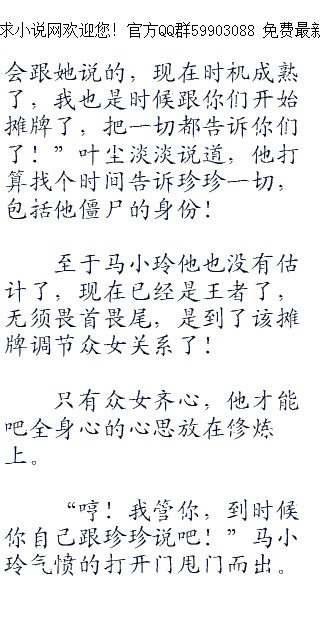 求小说网欢迎您！官方QQ群59903088 免费最新
会跟她说的，现在时机成熟
了，我也是时候跟你们开始
摊牌了，把一切都告诉你们
了！”叶尘淡淡说道，他打
算找个时间告诉珍珍一切，
包括他僵尸的身份！
至于马小玲他也没有估
计了，现在已经是王者了，
无须畏首畏尾，是到了该摊
牌调节众女关系了！
只有众女齐心，他才能
吧全身心的心思放在修炼
上。
“哼！我管你，到时候
你自己跟珍珍说吧！”马小
玲气愤的打开门甩门而出。